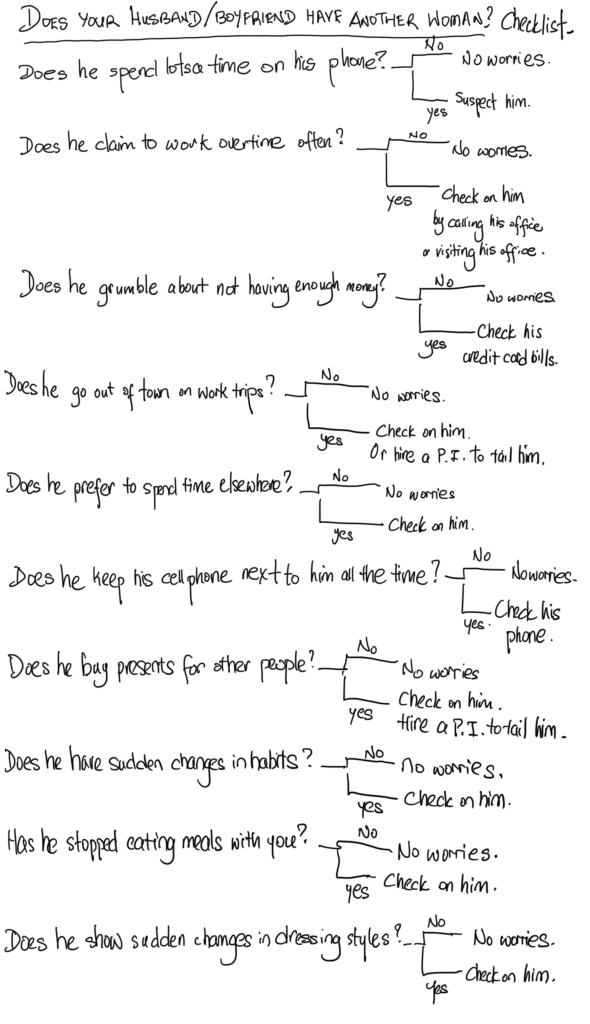 DOES YOUR HUSBAND/BOYFRIEND HAVE ANOTHER WOMAN? Checklist.
Does he spend lotsa time on his phone?
No
No worries.
yes
Suspect him.
Does he claim to work overtime often?
No
No worries.
yes
Check on him
by calling his office
or visiting his office.
Does he grumble about not having enough money?
No
No worries
yes
Check his
credit card bills.
Does he go out of town on work trips?
No
No worries.
yes
Check on him.
Or hire a P.I. to tail him.
Does he prefer to spend time elsewhere?
No
No worries
yes
Check on him.
Does he keep his cell phone next to him all the time?
No
No worries.
yes.
Check his
phone.
Does he buy presents for other people?
No
No worries
yes
Check on him.
Hire a P.I. to tail him.
Does he have sudden changes in habits?
No
No worries.
yes
Check on him.
Has he stopped eating meals with you?
No
No worries.
yes
Check on him.
Does he show sudden changes in dressing styles?
No
No worries.
yes
Check on him.